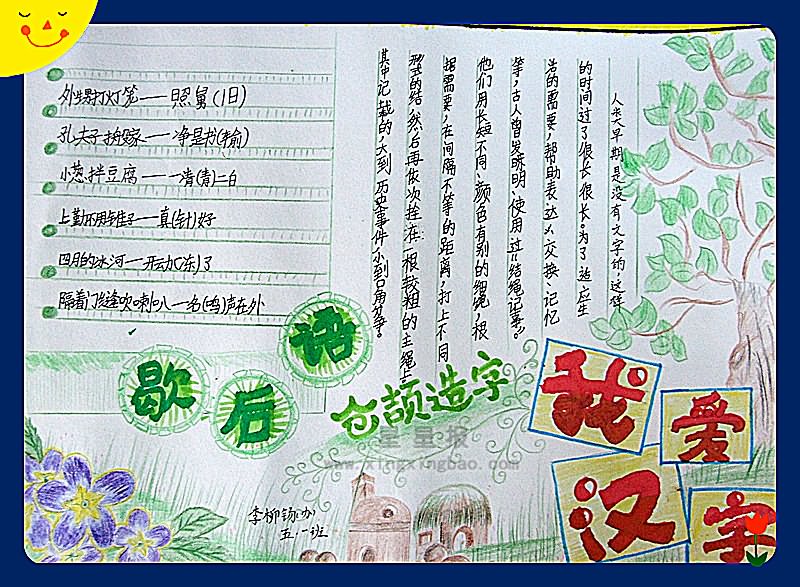 外甥打灯笼——照舅(旧)
孔夫子搬家——净是书(输)
小葱拌豆腐——一清(青)二白
上鞋不用锥子—真(针)好
四月的冰河—开动(冻)了
隔着门缝吹喇叭—名(鸣)声在外
人类早期是没有文字的，这样
的时间过了很长很长。为了适应生
活的需要，帮助表达、交换、记忆
等，古人曾发明、使用过“结绳记事”。
他们用长短不同、颜色有别的细绳，根
据需要，在间隔不等的距离，打上不同
形式的结，然后再依次拴在一根较粗的主绳上
其中记载的，大到历史事件，小到口角分争。
歇后语
仓颉造字
我爱
汉字
星星报
www.xingxingbao.com
李柳 办
五.一班